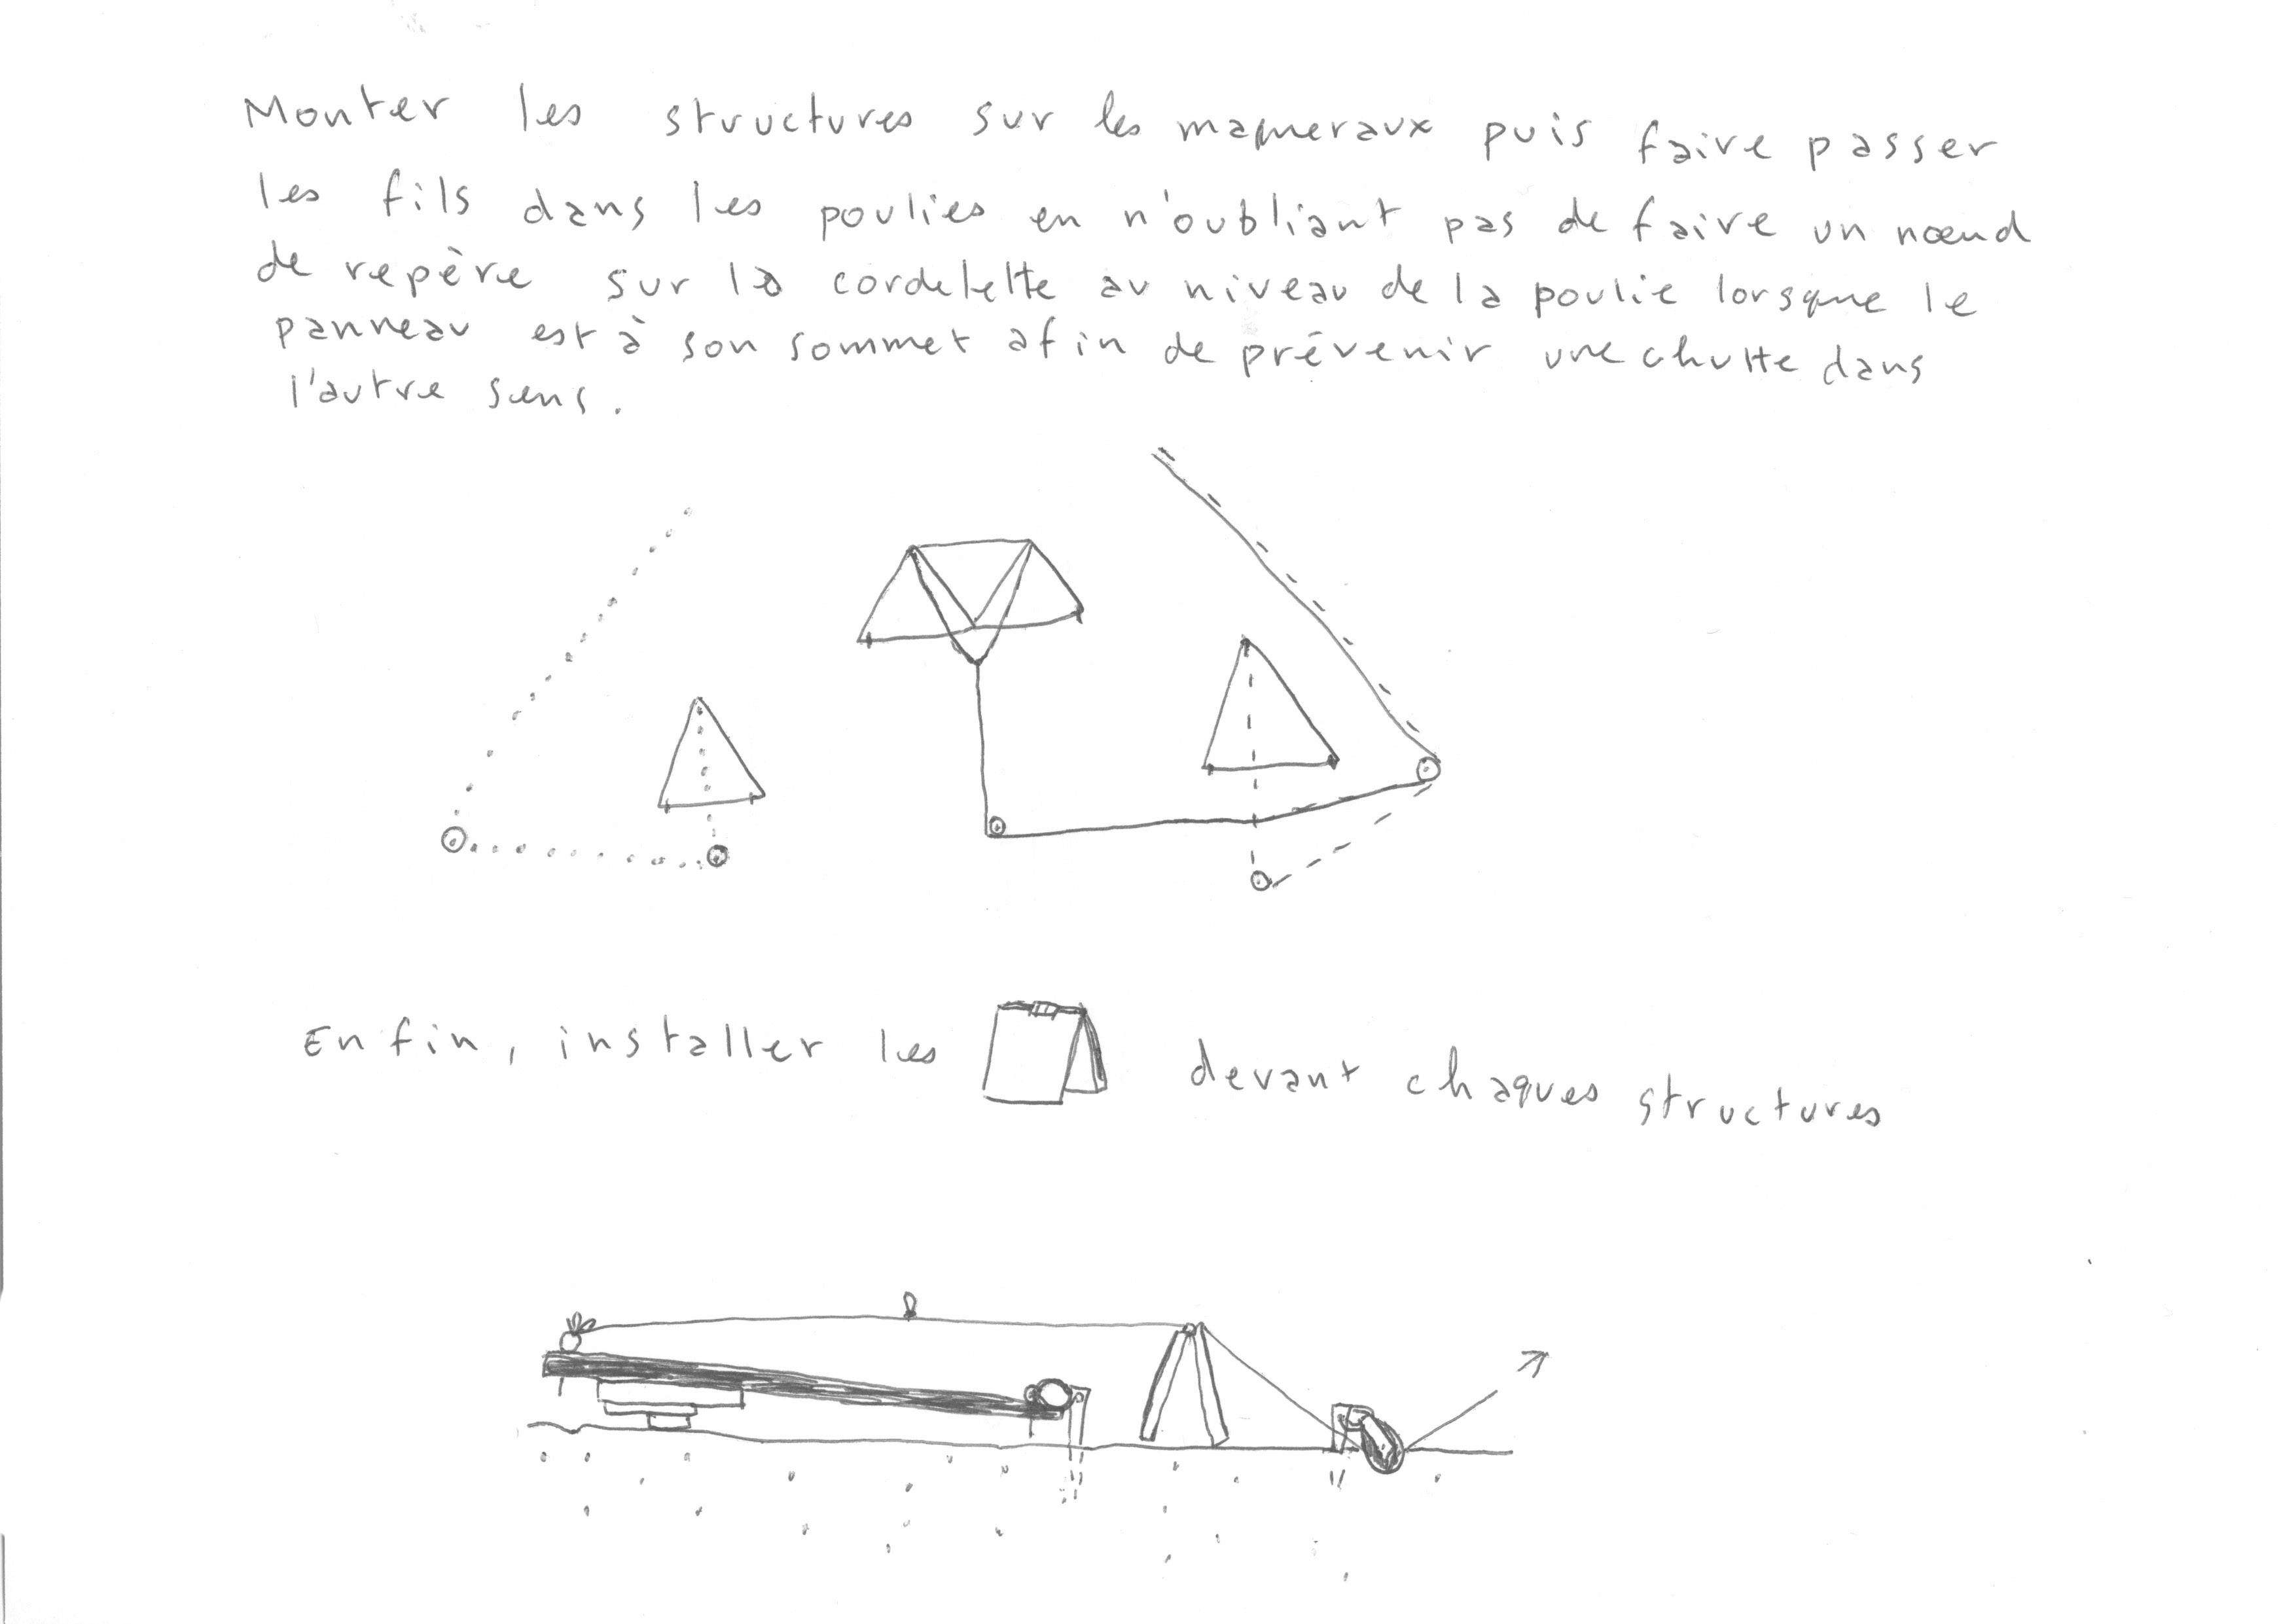 Monter les structures sur les maqueraux puis faire passer
les fils dans les poulies en n'oubliant pas de faire un nœud
de repère sur la cordelette au niveau de la poulie lorsque le
panneau est à son sommet afin de prévenir une chutte dans
l'autre sens.
Enfin, installer les devant chaques structures